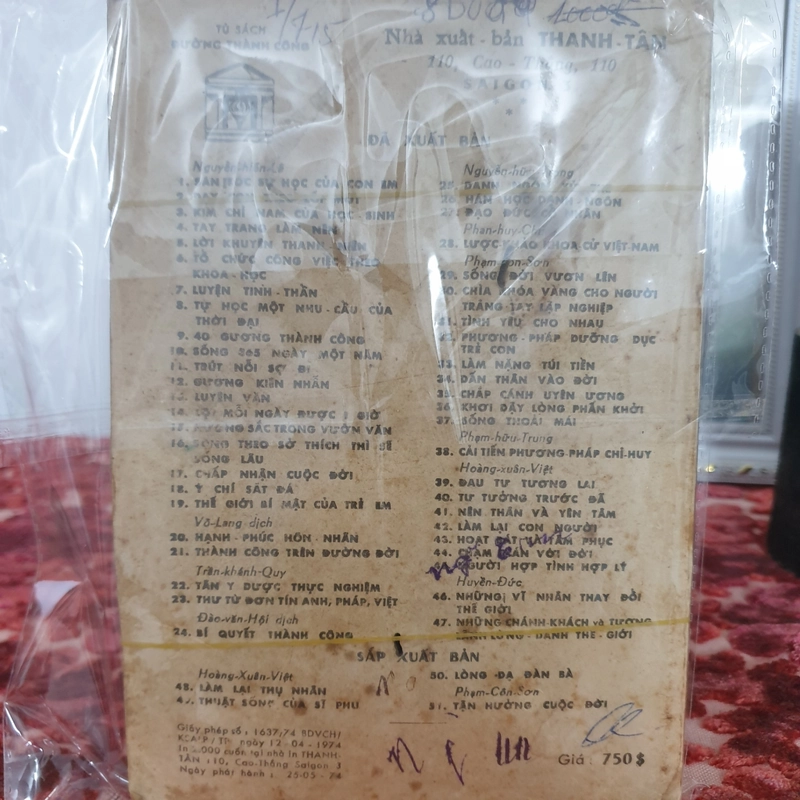 TỦ SÁCH
ĐƯỜNG THÀNH CÔNG
Nhà xuất-bản THANH-TÂN
110, Cao-Thắng, 110
SAIGON 3
ĐÃ XUẤT BẢN
Nguyễn-Hiến-Lê
1. SĂN SÓC SỰ HỌC CỦA CON EM
3. KIM CHỈ NAM CỦA HỌC SINH
4. TAY TRẮNG LÀM NÊN
5. LỜI KHUYÊN THANH NIÊN
6. TỔ CHỨC CÔNG VIỆC THEO
KHOA-HỌC
7. LUYỆN TINH-THẦN
8. TỰ HỌC MỘT NHU-CẦU CỦA
THỜI ĐẠI
9. 40 GƯƠNG THÀNH CÔNG
10. SỐNG 365 NGÀY MỘT NĂM
11. TRÚT NỖI SỢ ĐI
12. GƯƠNG KIÊN NHẪN
13. LUYỆN VĂN
14. LỜI MỖI NGÀY ĐƯỢC 1 GIỜ
15. HƯƠNG SẮC TRONG VƯỜN VĂN
16. SỐNG THEO SỞ THÍCH THÌ SẼ
SỐNG LÂU
17. CHẤP NHẬN CUỘC ĐỜI
18. Ý CHÍ SẮT ĐÁ
19. THẾ GIỚI BÍ MẬT CỦA TRẺ EM
Võ-Lang dịch
20. HẠNH-PHÚC HÔN-NHÂN
21. THÀNH CÔNG TRÊN ĐƯỜNG ĐỜI
Trần-khánh-Quy
22. TÂN Y DƯỢC THỰC NGHIỆM
23. THƯ TỪ ĐƠN TÍN ANH, PHÁP, VIỆT
Đào-văn-Hội dịch
24. BÍ QUYẾT THÀNH CÔNG
25. DANH
26. HÁN HỌC DANH-NGÔN
27. ĐẠO ĐỨC NHÂN
28. LƯỢC KHẢO KHOA CỬ VIỆT-NAM
Phạm-côn-Sơn
29. SỐNG ĐỜI VƯƠN LÊN
30. CHÌA KHÓA VÀNG CHO NGƯỜI
TRẮNG TAY LẬP NGHIỆP
31. TÌNH YÊU CHO NHAU
32. PHƯƠNG-PHÁP DƯỠNG DỤC
TRẺ CON
33. LÀM NẶNG TÚI TIỀN
34. DẤN THÂN VÀO ĐỜI
35. CHẮP CÁNH UYÊN ƯƠNG
36. KHƠI DẬY LÒNG PHẤN KHỞI
37. SỐNG THOẢI MÁI
Phạm-hữu-Trung
38. CẢI TIẾN PHƯƠNG PHÁP CHỈ-HUY
Hoàng-xuân-Việt
39. ĐẦU TƯ TƯƠNG LAI
40. TƯ TƯỞNG TRƯỚC ĐÃ
41. NÊN THÂN VÀ YÊN TÂM
42. LÀM LẠI CON NGƯỜI
43. HOẠT BÁT VÀ TÂM PHỤC
44. CHẠM TRÁN VỚI ĐỜI
NGƯỜI HỢP TÌNH HỢP LÝ
Huyền-Đức
46. NHỮNG VĨ NHÂN THAY ĐỔI
THẾ GIỚI
47. NHỮNG CHÁNH-KHÁCH và TƯỚNG
DANH THẾ-GIỚI
SẮP XUẤT BẢN
Hoàng-Xuân-Việt
48. LÀM LẠI THỤ NHÂN
49. THUẬT SỐNG CỦA SĨ PHU
50. LÒNG DẠ ĐÀN BÀ
Phạm-Côn-Sơn
51. TẬN HƯỞNG CUỘC ĐỜI
Giấy phép số : 1637/74 BDVCH/
ngày 12-04-1974
In 2.000 cuốn tại nhà in THANH-
TÂN 110, Cao-Thắng Saigon 3
Ngày phát hành : 25-05-74
Giá : 750$